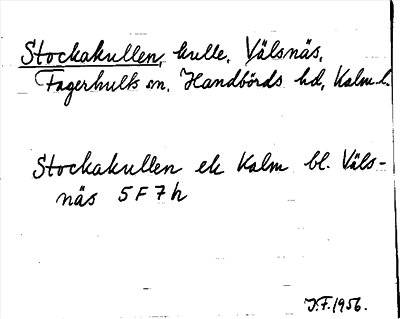 Stockakullen, kulle, Välsnäs,
Fagerhults sn, Handbörds hd, Kalm. l.
Stockakullen ek Kalm bl. Väls-
näs 5 F 7 h
J.F. 1956.